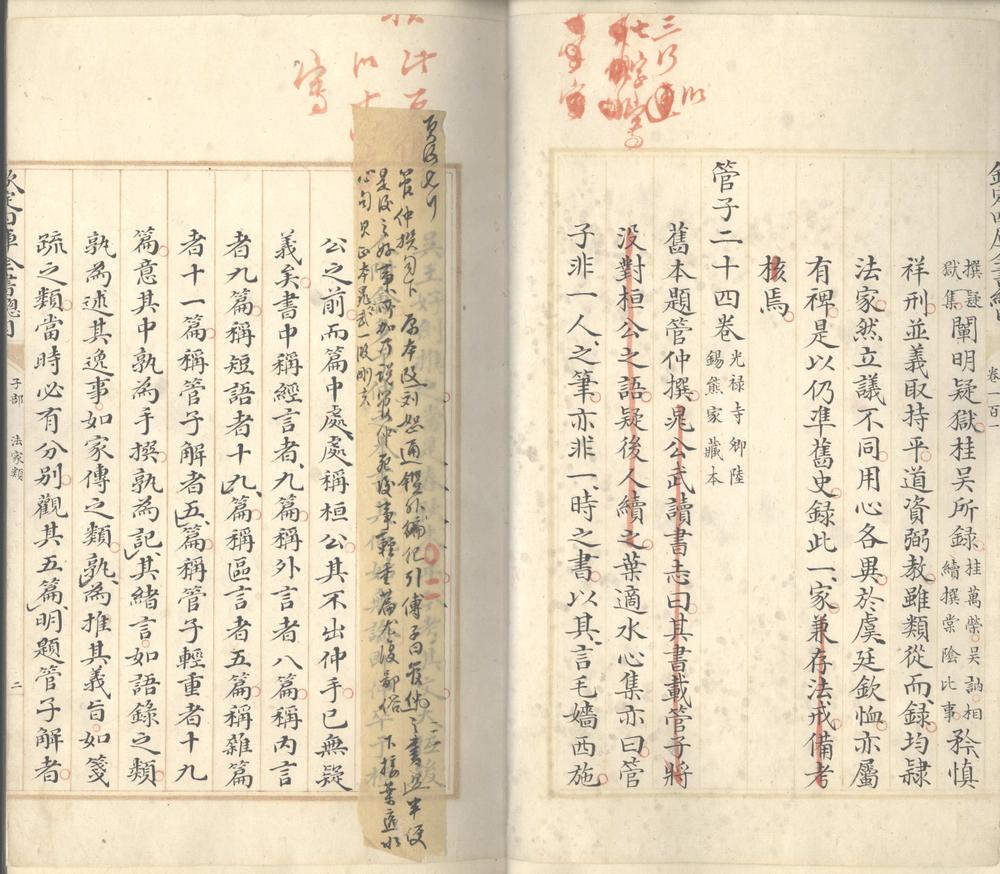 三行
以
七字寫
撰疑
獄集
闡明疑獄桂吳所録
桂萬榮吳訥相
續撰棠陰比事
矜慎
祥刑並義取持平道資弼教雖類從而録均隸
法家然立議不同用心各異於虞廷欽恤亦屬
有裨是以仍準舊史録此一家兼存法戒備考
核焉
管子二十四卷
光祿寺卿陸
錫熊家藏本
舊本題管仲撰晁公武讀書志曰其書載管子將
没對桓公之語疑後人續之葉適水心集亦曰管
子非一人之筆亦非一時之書以其言毛嬙西施
卷一百一
管仲撰句下原本改刘恕通鑑外编引傅子曰管仲之書過半便
是後之好事所加乃説管仲死後事輕重篇尤復鄙俗下接葉適水
公之前而篇中處處稱桓公其不出仲手已無疑
義矣書中稱經言者九篇稱外言者八篇稱内言
者九篇稱短語者十九篇稱區言者五篇稱雜篇
者十一篇稱管子解者五篇稱管子輕重者十九
篇意其中孰為手撰孰為記其緒言如語錄之類
孰為述其逸事如家傳之類孰為推其義旨如箋
疏之類當時必有分別觀其五篇明題管子解者
欽定四庫全書總目
子部
法家類
二
寫